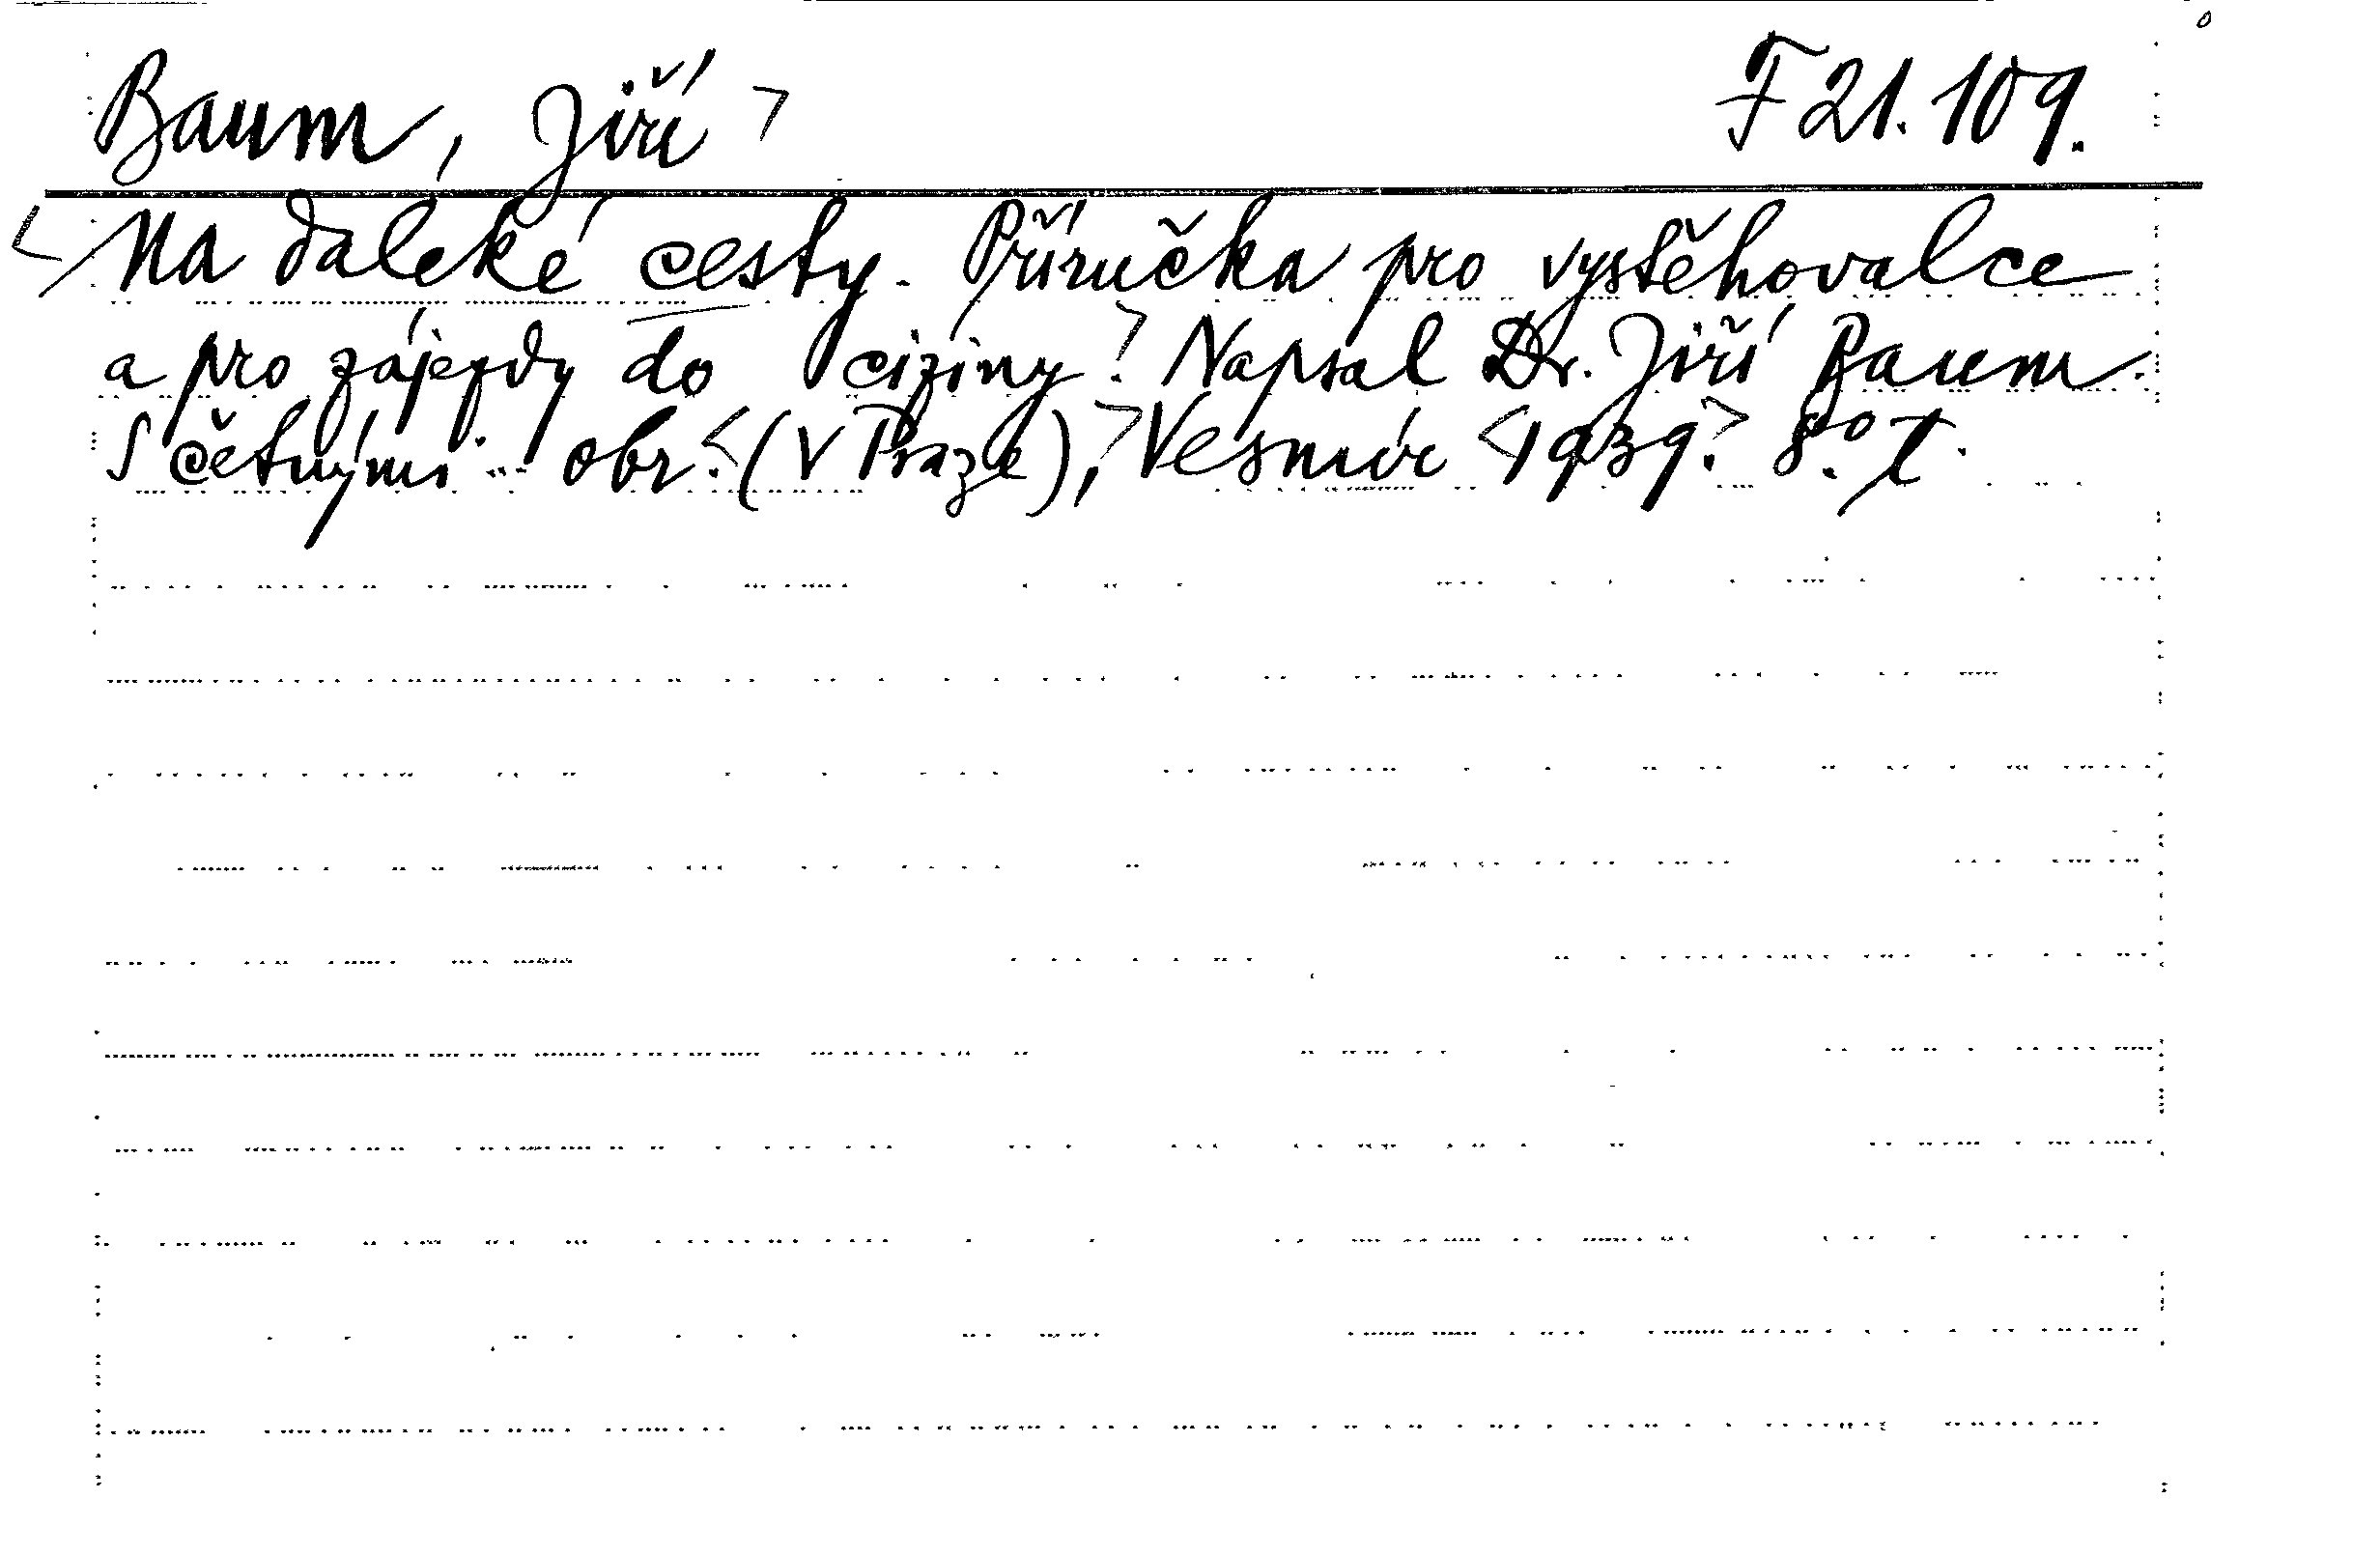 Baum, Jiří > F 21.109.
< Na daleké cesty. Příručka pro vystěhovalce
a pro zájezdy do ciziny. > Napsal Dr. Jiří Baum.
S četnými obr. < (V Praze), > Vesmír < 1939. > 8.º